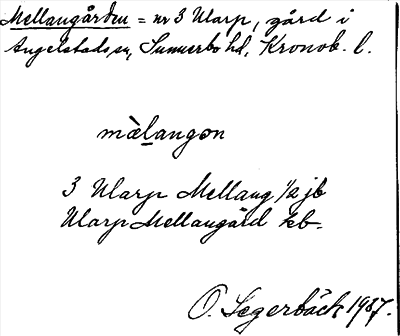 Mellangården = nr 3 Ularp, gård i
Angelstads sn, Sunnerbo hd, Kronob. l.
mèlangən
3 Ularp Mellang 1/2 jb
Ularp Mellangård kb.
O. Segerbäck 1937.